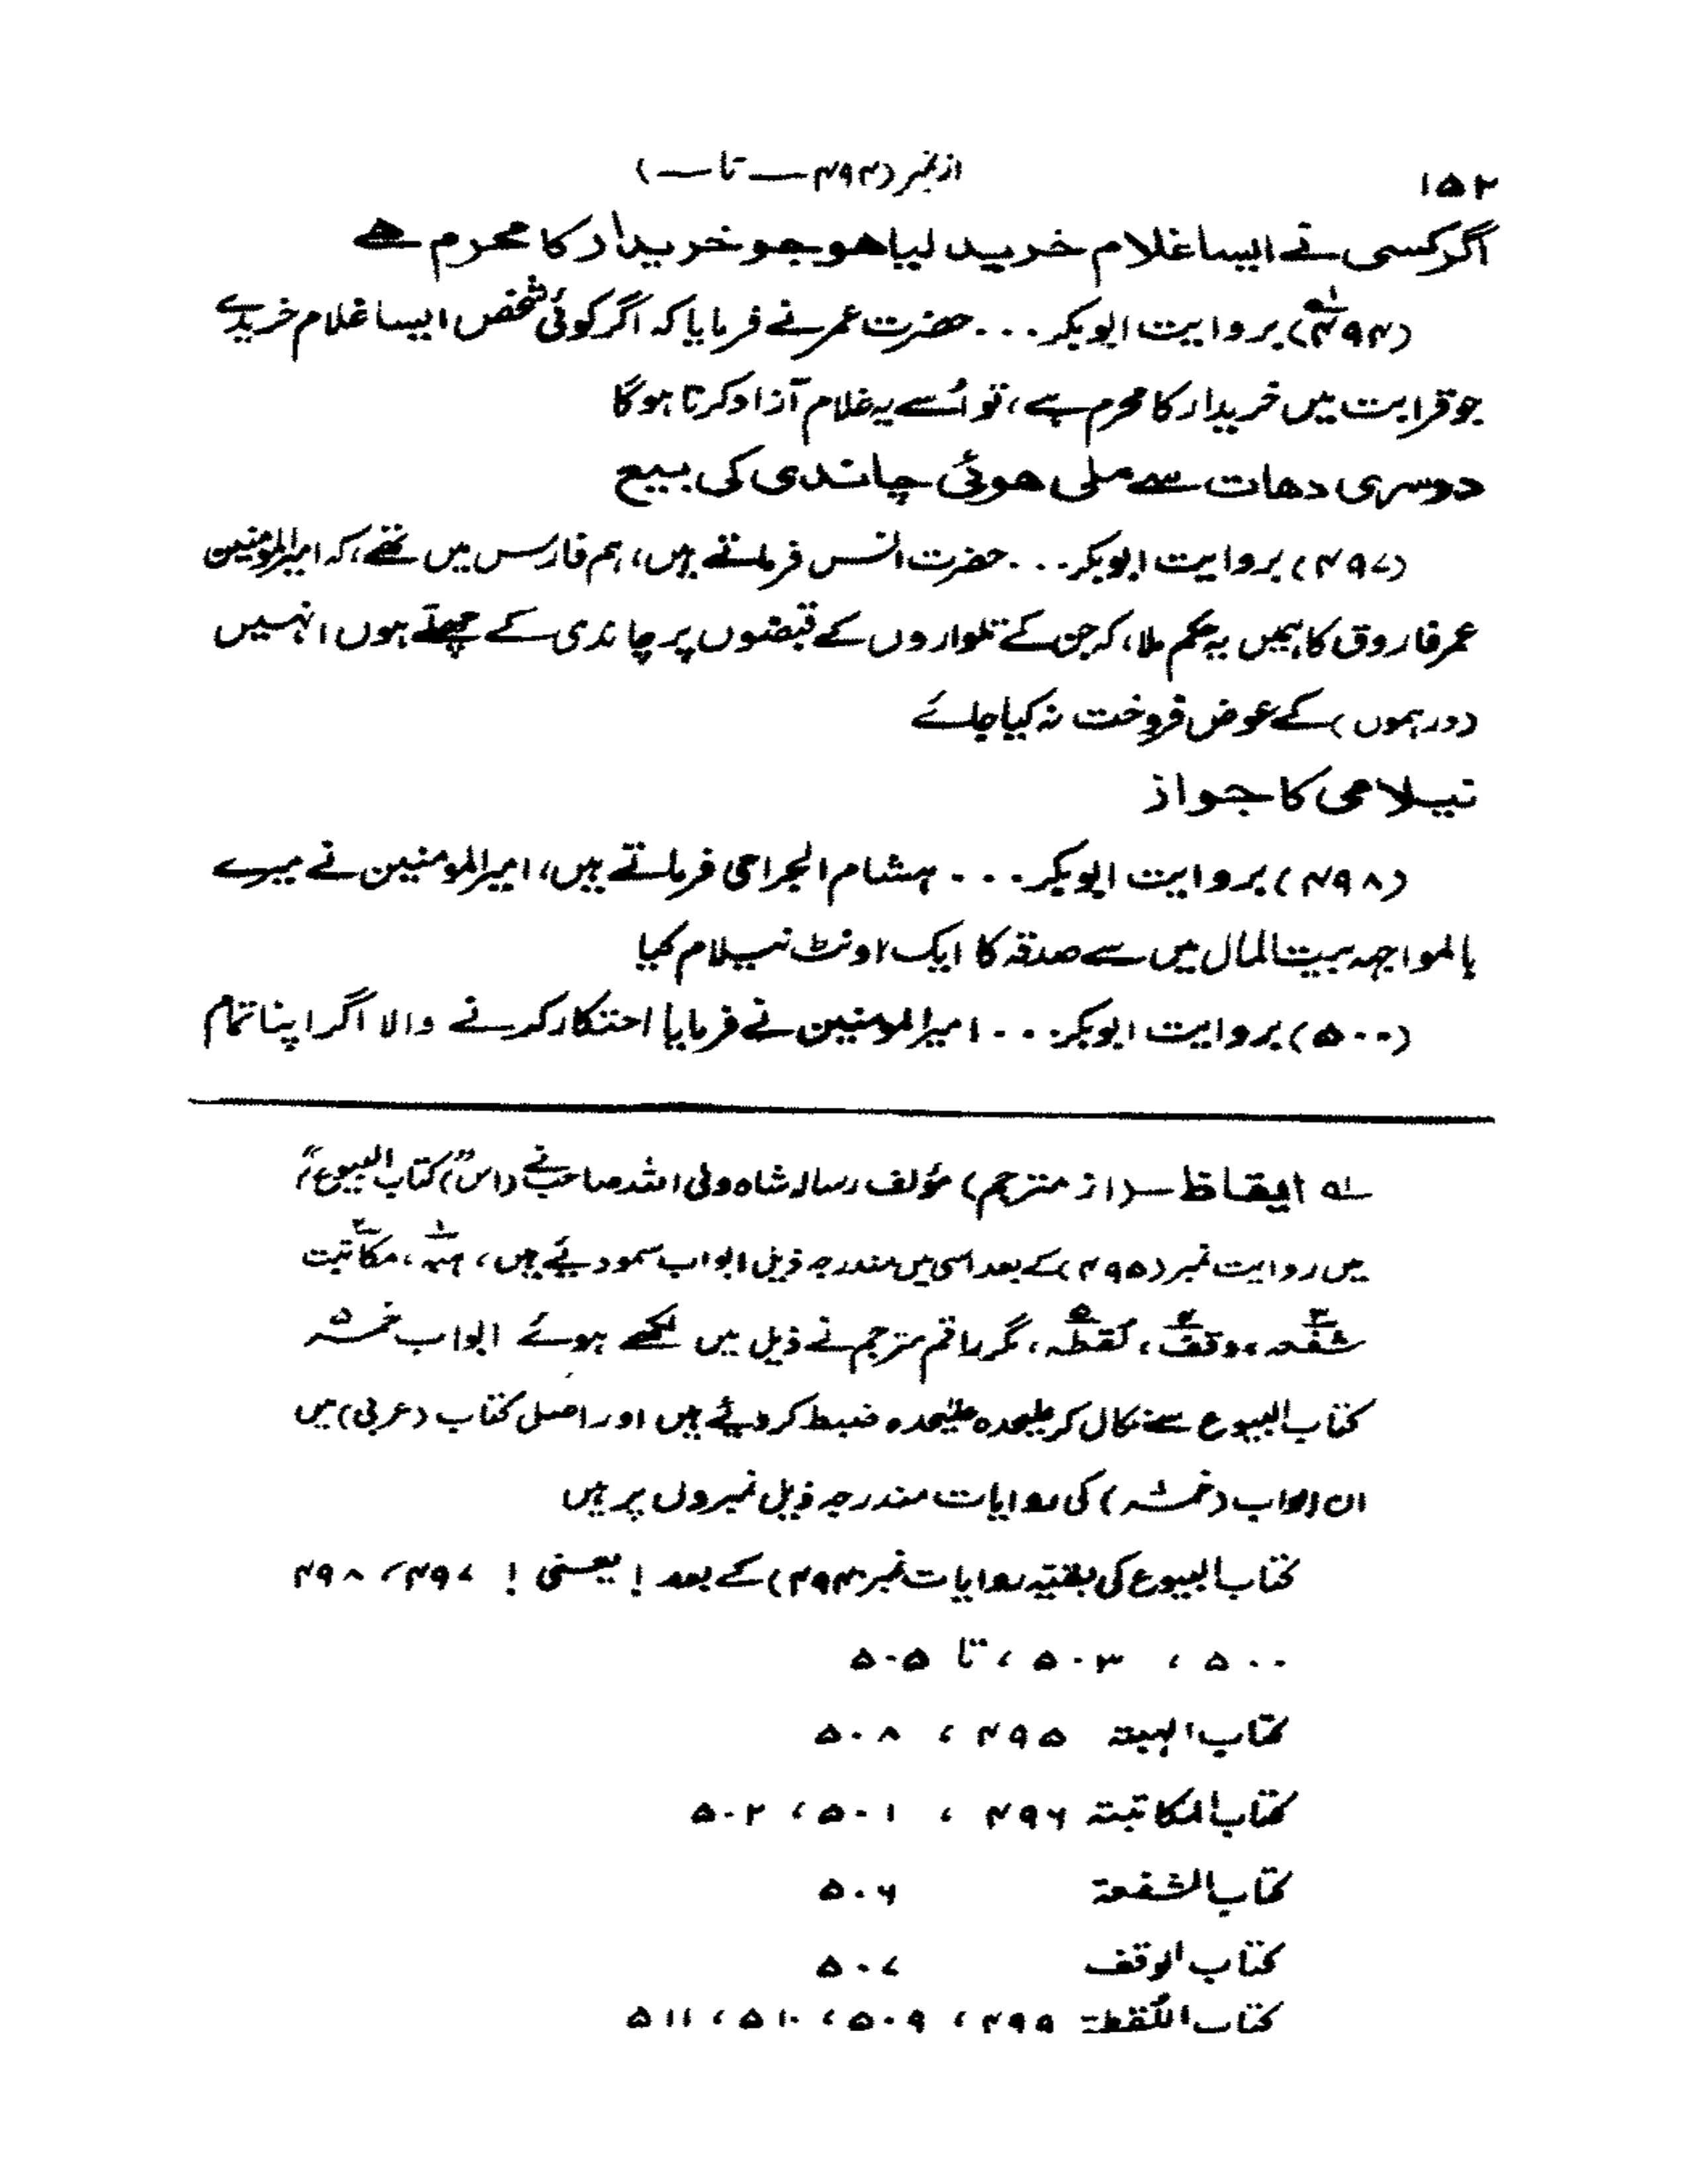 ۱۵۲
از نمبر (۴۹۴ — تا —)
اگر کسی نے ایسا غلام خرید لیا ہو جو خریدار کا محرم ہے
(۴۹۴)ؔ بروایت ابوبکر ... حضرت عمر نے فرمایا کہ اگر کوئی شخص ایسا غلام خریدے
جو قرابت میں خریدار کا محرم ہے، تو اُسے یہ غلام آزاد کرنا ہو گا
دوسری دھات سے ملی ہوئی چاندی کی بیع
(۴۹۷) بروایت ابوبکر ... حضرت انس فرماتے ہیں، ہم فارس میں تھے، کہ امیرالمومنین
عمر فاروق کا ہمیں یہ حکم ملا، کہ جن کے تلواروں کے قبضوں پر چاندی کے چھلے ہوں انہیں
(درہموں) کے عوض فروخت نہ کیا جائے
نیلامی کا جواز
(۴۹۸) بروایت ابوبکر ... ہشام الجرامی فرماتے ہیں، امیرالمومنین نے میرے
بالمواجہہ بیت المال میں سے صدقہ کا ایک اونٹ نیلام کیا
(۵۰۰) بروایت ابوبکر ... امیرالمومنین نے فرمایا احتکار کرنے والا اگر اپنا تمام
۱؎ ایقاظ — (از مترجم) مؤلف رسالہ شاہ ولی اللہ صاحب نے (اس) "کتاب البیوع"
میں روایت نمبر (۴۹۵) کے بعد اسی میں مندرجہ ذیل ابواب سمو دیئے ہیں، ہبہ۱، مکاتبت۲
شفعہ۳، وقف۴، لقطہ۵، مگر راقم مترجم نے ذیل میں لکھے ہوئے ابواب خمسہ
کتاب البیوع سے نکال کر علیحدہ علیحدہ ضبط کر دیئے ہیں اور اصل کتاب (عربی) میں
ان ابواب (خمسہ) کی روایات مندرجہ ذیل نمبروں پر ہیں
کتاب البیوع کی بقیہ روایات نمبر ۴۹۴) کے بعد ! یعنی ! ۴۹۷، ۴۹۸
۵۰۰ ، ۵۰۳ ، تا ۵۰۵
کتاب الہبۃ ۴۹۵ ، ۵۰۸
کتاب المکاتبتہ ۴۹۶ ، ۵۰۱ ، ۵۰۲
کتاب الشفعۃ ۵۰۶
کتاب الوقف ۵۰۷
کتاب اللُقطۃ ۴۹۹ ، ۵۰۹ ، ۵۱۰ ، ۵۱۱